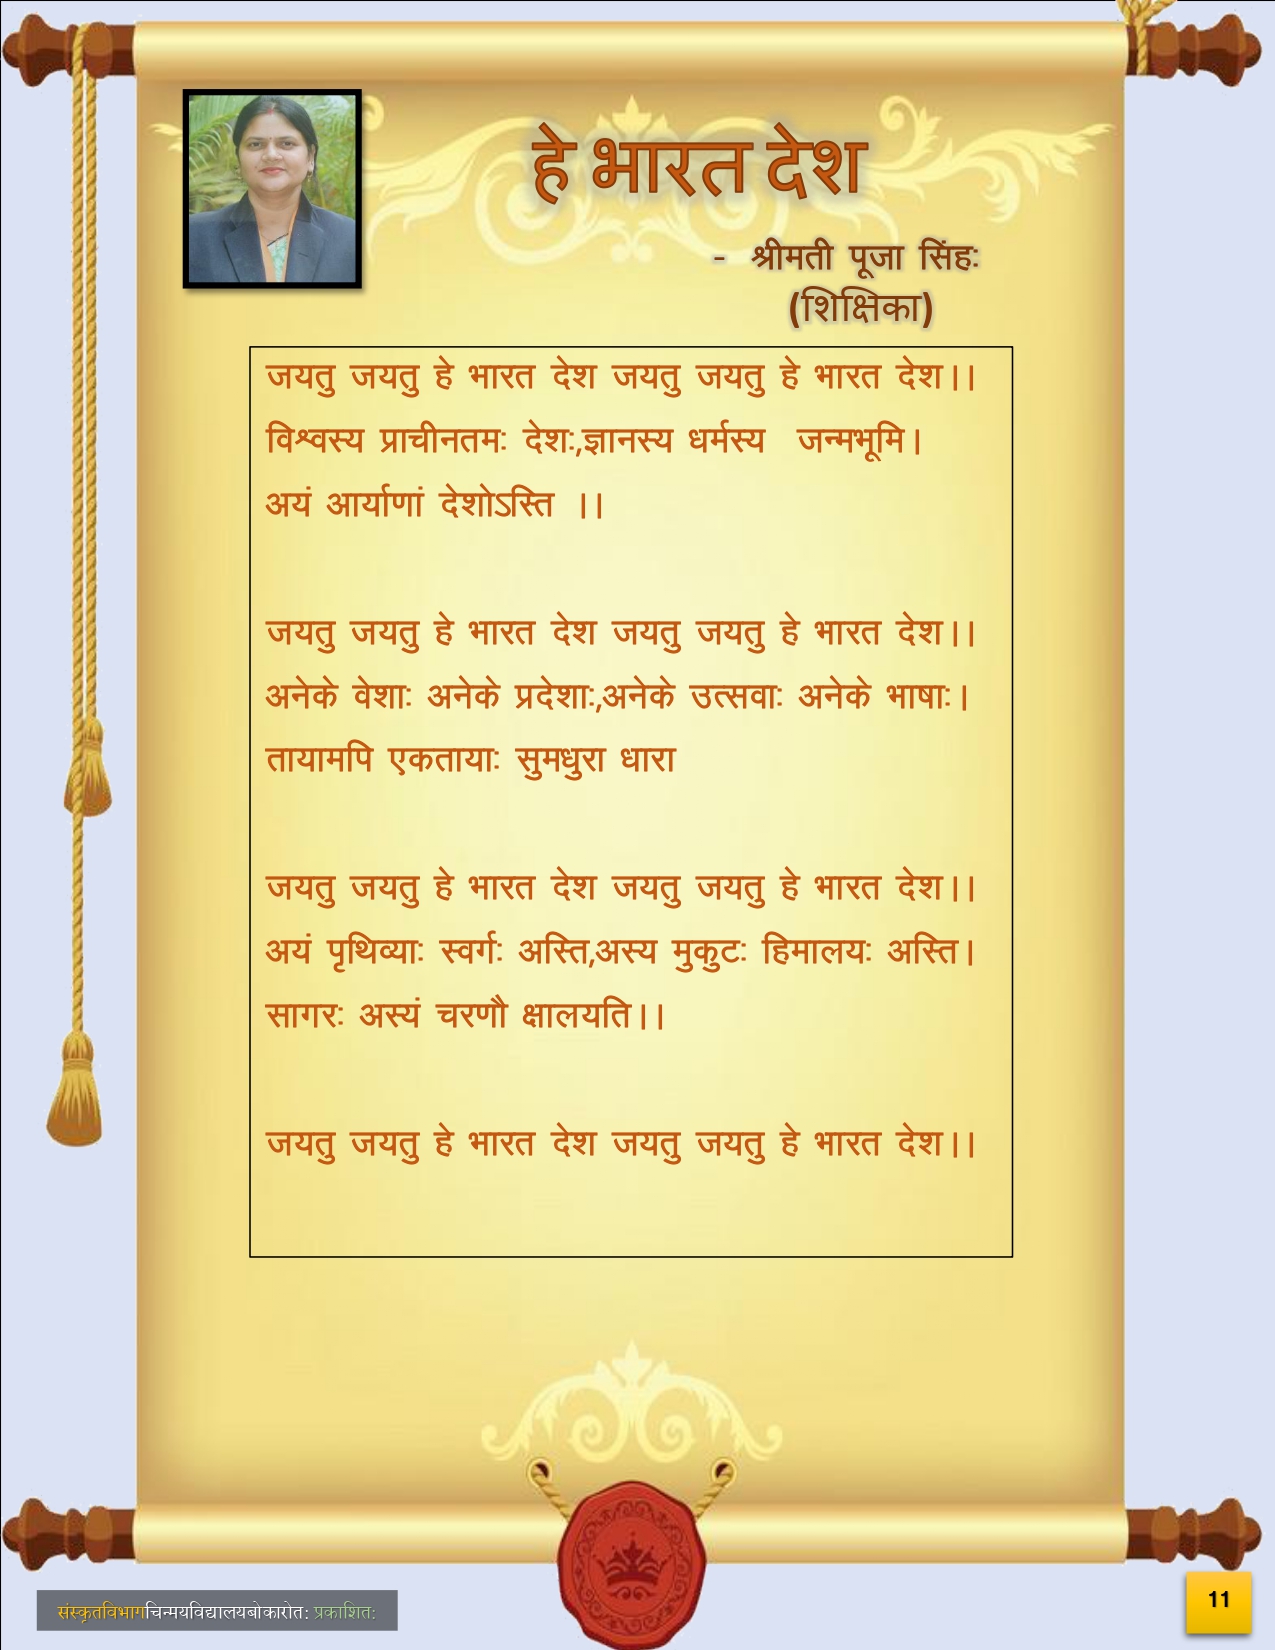 हे भारत देश
- श्रीमती पूजा सिंहः
(शिक्षिका)
जयतु जयतु हे भारत देश जयतु जयतु हे भारत देश।।
विश्वस्य प्राचीनतमः देशः,ज्ञानस्य धर्मस्य जन्मभूमि।
अयं आर्याणां देशोऽस्ति ।।
जयतु जयतु हे भारत देश जयतु जयतु हे भारत देश।।
अनेके वेशाः अनेके प्रदेशाः,अनेके उत्सवाः अनेके भाषाः।
तायामपि एकतायाः सुमधुरा धारा
जयतु जयतु हे भारत देश जयतु जयतु हे भारत देश।।
अयं पृथिव्याः स्वर्गः अस्ति,अस्य मुकुटः हिमालयः अस्ति।
सागरः अस्यं चरणौ क्षालयति।।
जयतु जयतु हे भारत देश जयतु जयतु हे भारत देश।।
संस्कृतविभागचिन्मयविद्यालयबोकारोत: प्रकाशित:
11